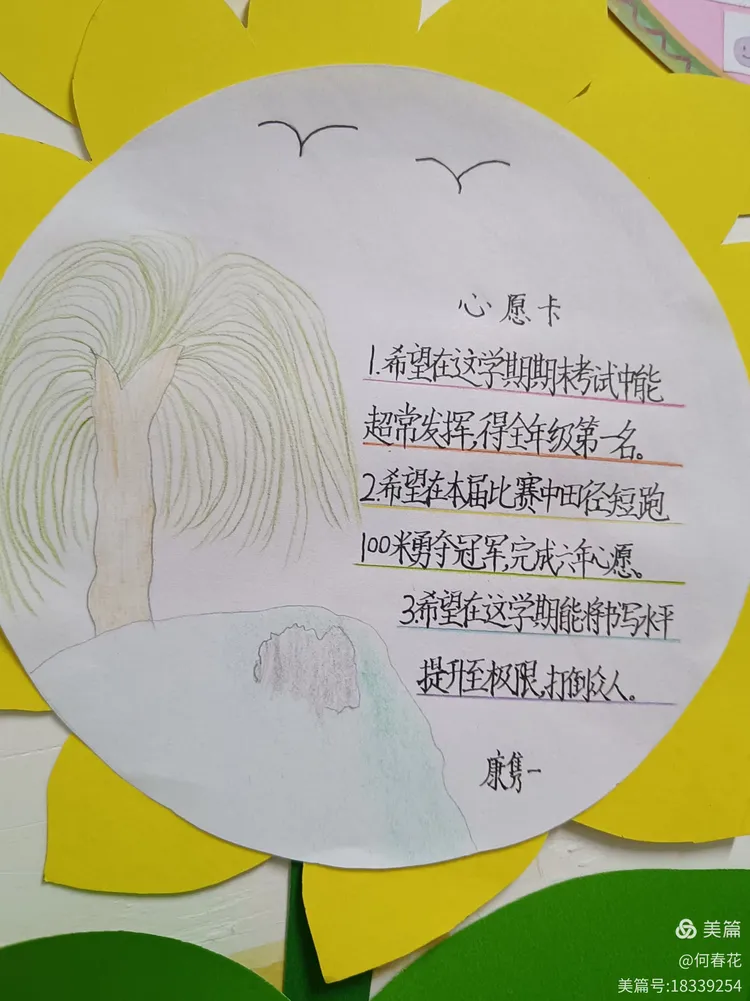 心愿卡
1.希望在这学期期末考试中能
超常发挥,得全年级第一名。
2.希望在本届比赛中田径短跑
100米勇夺冠军,完成六年心愿。
3.希望在这学期能将书写水平
提升至极限,打倒众人。
康隽一
美篇
@何春花
美篇号:18339254